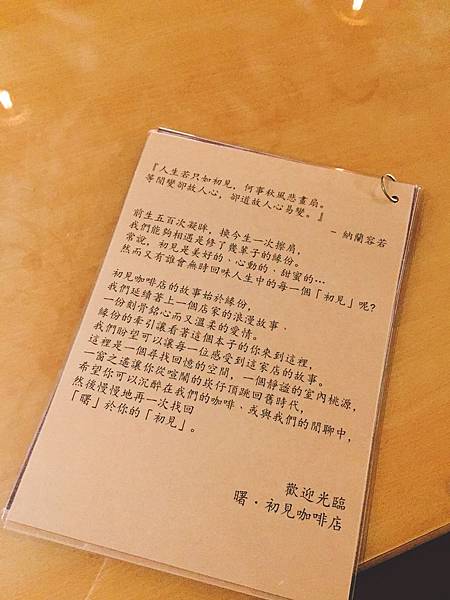 『人生若只如初見，何事秋風悲畫扇。
等閒變卻故人心，卻道故人心易變。』
- 納蘭容若
前生五百次凝眸，換今生一次擦肩，
我們能夠相遇是修了幾輩子的緣份。
常說，初見是美好的、心動的、甜蜜的…
然而又有誰會無時回味人生中的每一個「初見」呢?
初見咖啡店的故事始於緣份，
我們延續著上一個店家的浪漫故事、
一份刻骨銘心而又溫柔的愛情。
緣份的牽引讓看著這個本子的你來到這裡，
我們盼望可以讓每一位感受到這家店的故事。
這裡是一個尋找回憶的空間，一個靜謐的室內桃源，
一窗之遙讓你從喧鬧的崁仔頂跳回舊時代，
希望你可以沉醉在我們的咖啡、或與我們的閒聊中，
然後慢慢地再一次找回
「曙」於你的「初見」。
歡迎光臨
曙．初見咖啡店